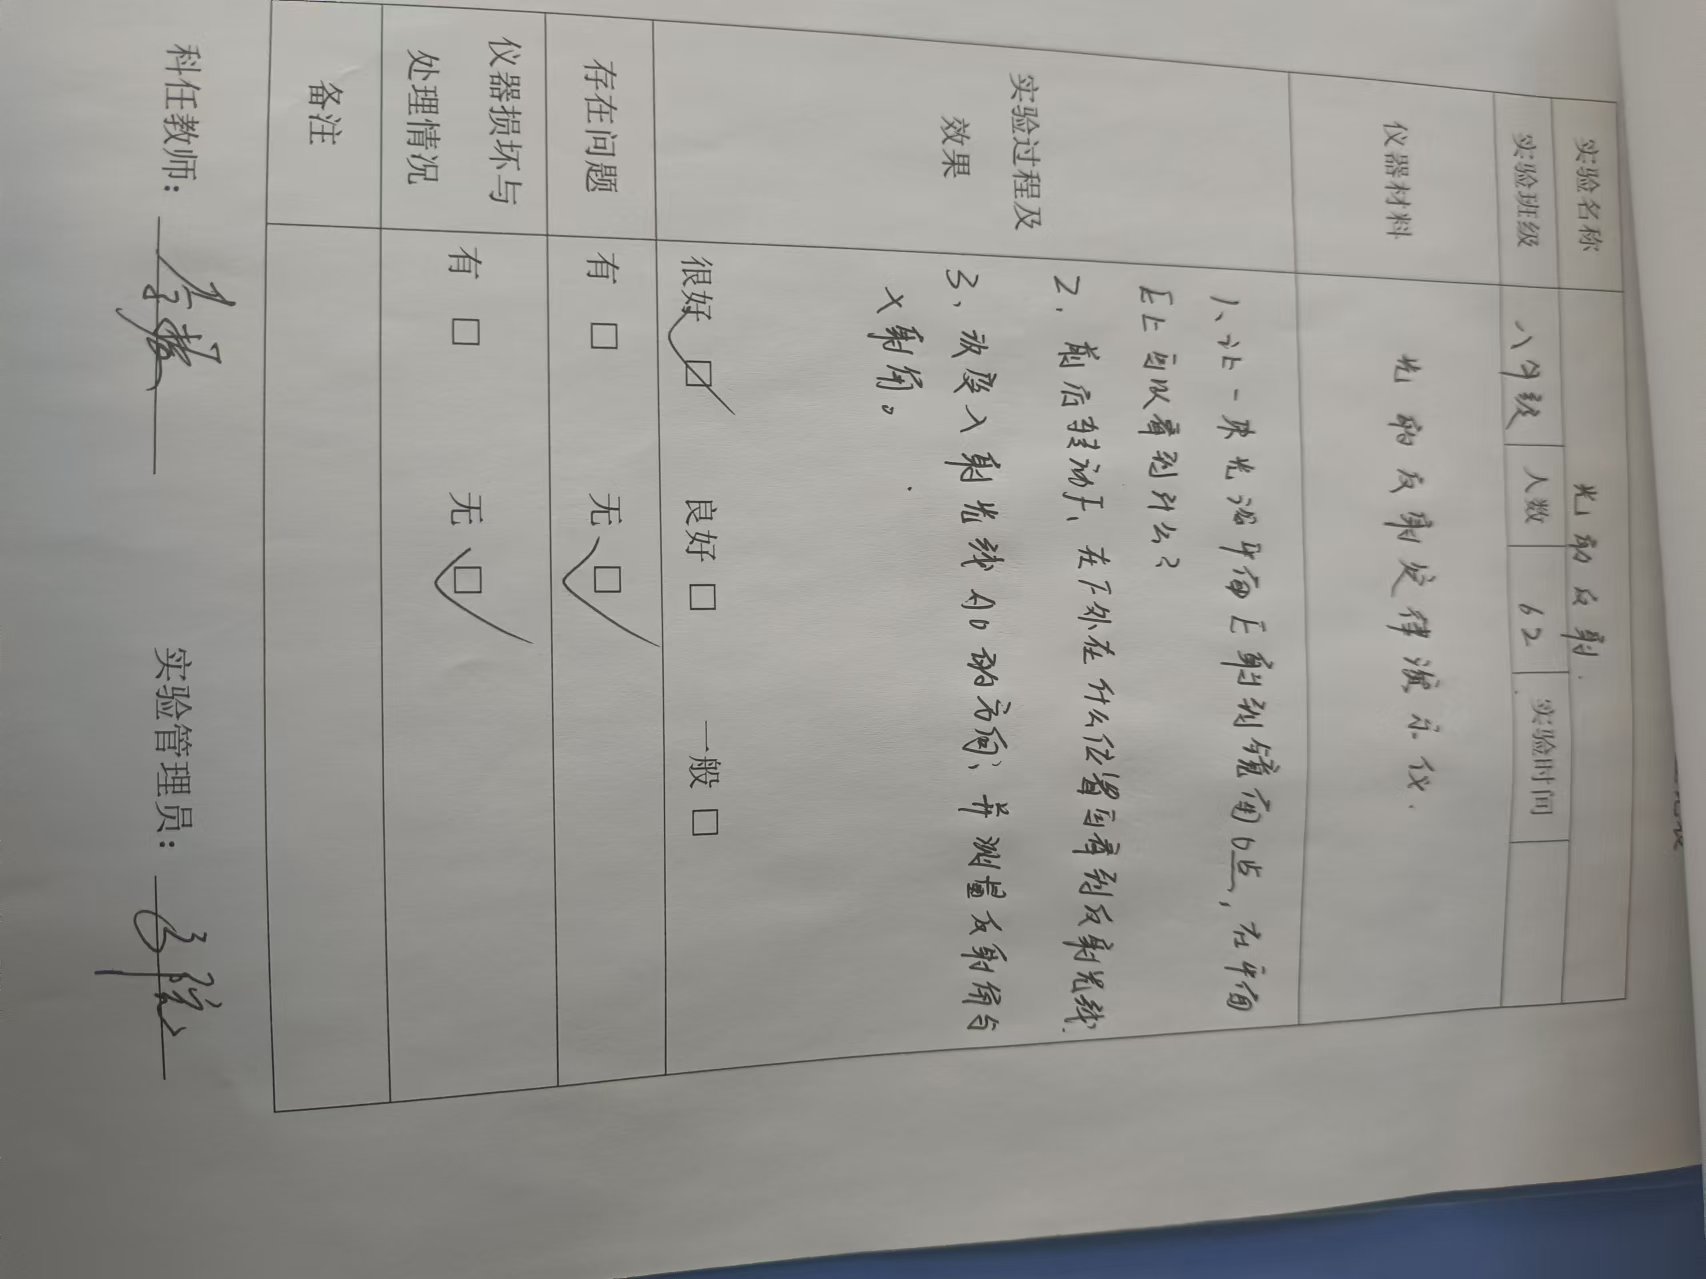 实验名称 光的反射.
实验班级 八年级 人数 62 实验时间
仪器材料 光的反射定律演示仪.
实验过程及
效果
1、让一束光沿平面E射到镜面O点，在平面
E上可以看到什么？
2. 前后转动F、在F外在什么位置回看到反射光线.
3、改变入射光线AO的方向，并测量反射角与
入射角。
很好 ☑ 良好 □ 一般 □
存在问题 有 □ 无 ☑
仪器损坏与
处理情况
有 □ 无 ☑
备注
科任教师： 实验管理员：